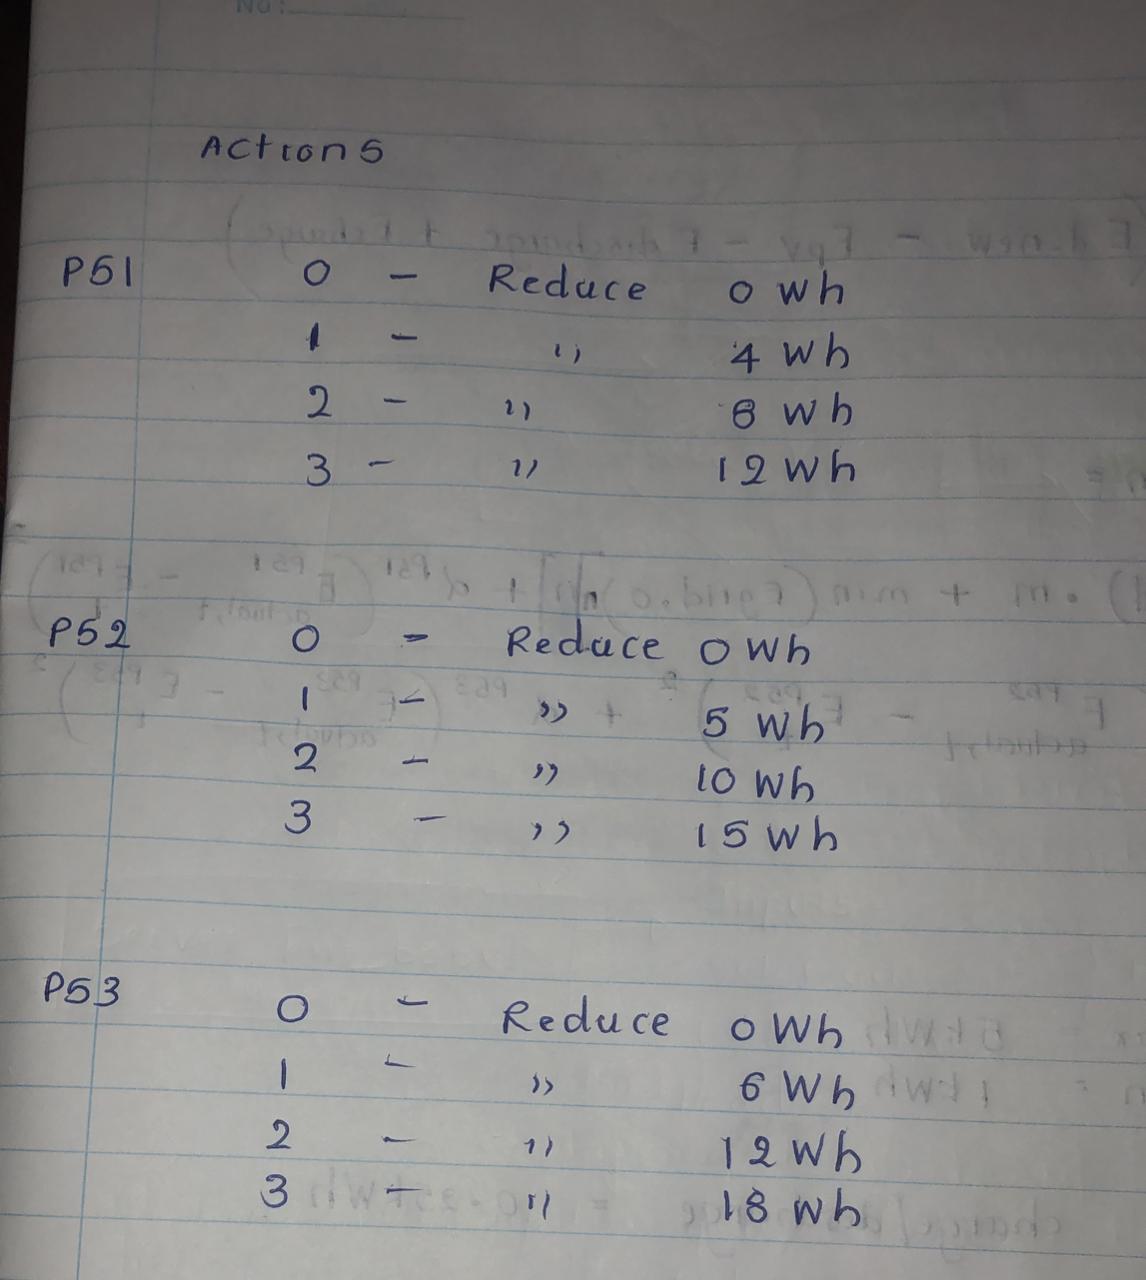 No:
Actions
PS1 0 - Reduce 0 Wh
1 - ,, 4 Wh
2 - ,, 8 Wh
3 - ,, 12 Wh
PS2 0 - Reduce 0 Wh
1 - ,, 5 Wh
2 - ,, 10 Wh
3 - ,, 15 Wh
PS3 0 - Reduce 0 Wh
1 - ,, 6 Wh
2 - ,, 12 Wh
3 - ,, 18 Wh